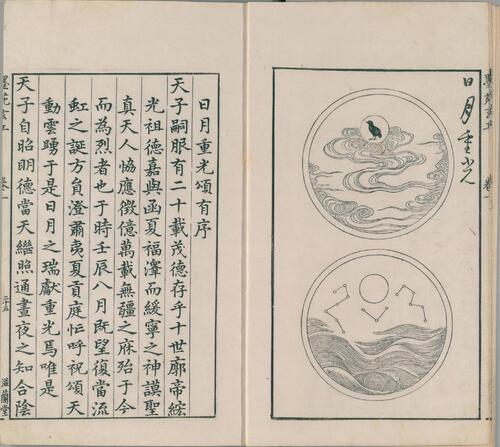 日月重光
日月重光頌有序
天子嗣服有二十載茂德存乎十世廓帝紘
光祖德嘉與函夏福澤而綏寧之神謨聖
真天人恊應徵億萬載無疆之庥殆于今
而為烈者也于時壬辰八月既望復當流
虹之誕方員澄肅夷夏貢庭忭呼祝頌天
動雲踴于是日月之瑞獻重光焉唯是
天子自昭明德當天繼照通晝夜之知合陰
墨苑玄工 卷一
滋蘭堂